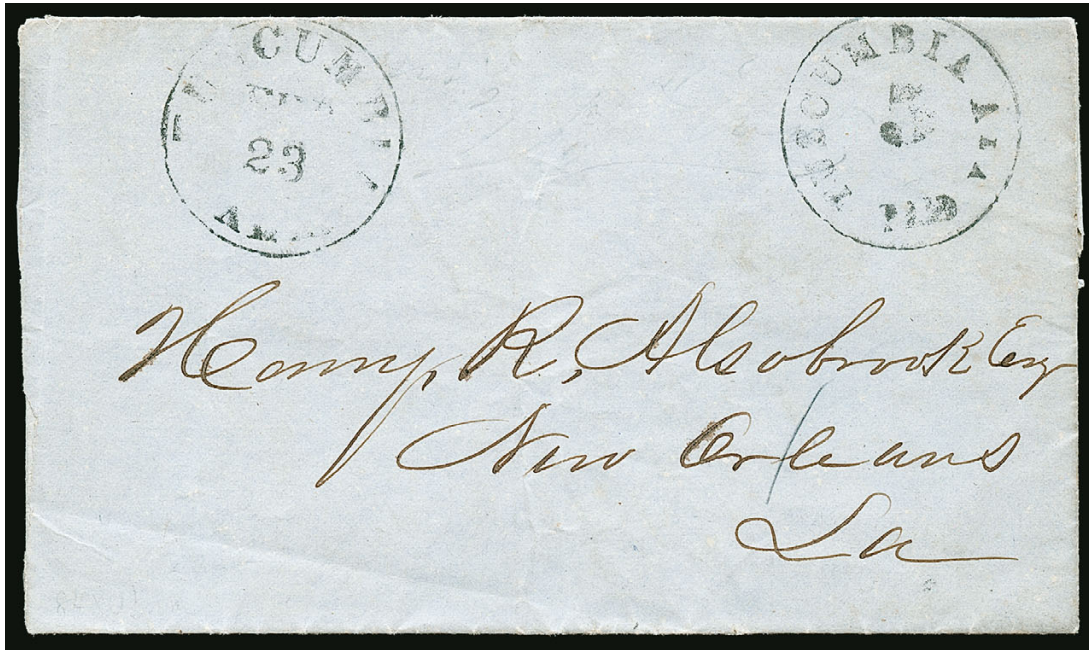 TUSCUMBIA
23
ALA
TUSCUMBIA ALA
5
PAID
Henry R, Alsobrook Esq
New Orleans
La